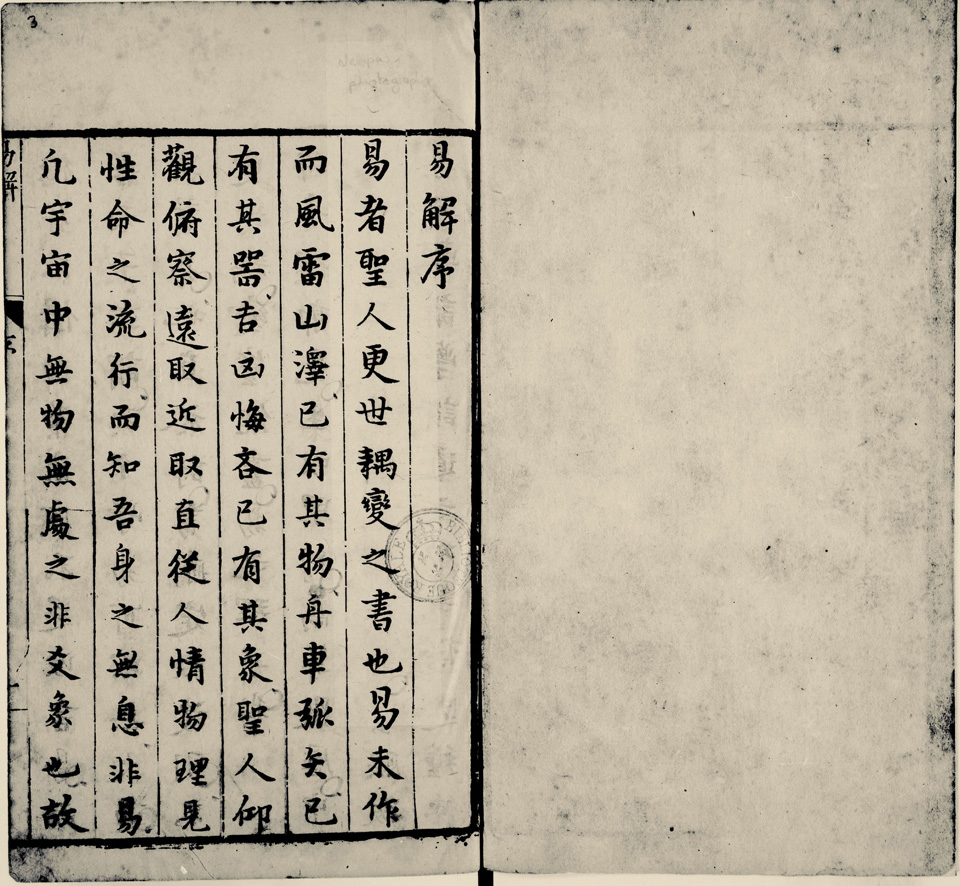 易解序
易者聖人更世耦變之書也易未作
而風雷山澤已有其物舟車弧矢已
有其噐吉凶悔吝已有其象聖人仰
觀俯察遠取近取直從人情物理見
性命之流行而知吾身之無息非易
凢宇宙中無物無處之非爻象也故
易解
3